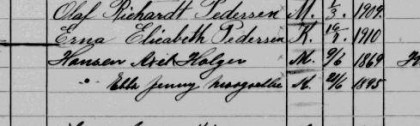 Olaf Richardt Pedersen M. 2/3. 1909.
Erna Elisabeth Pedersen K. 1910
Hansen Axel Holger M. 9/6 1869
" Ella Jenny K. 2/6 1895